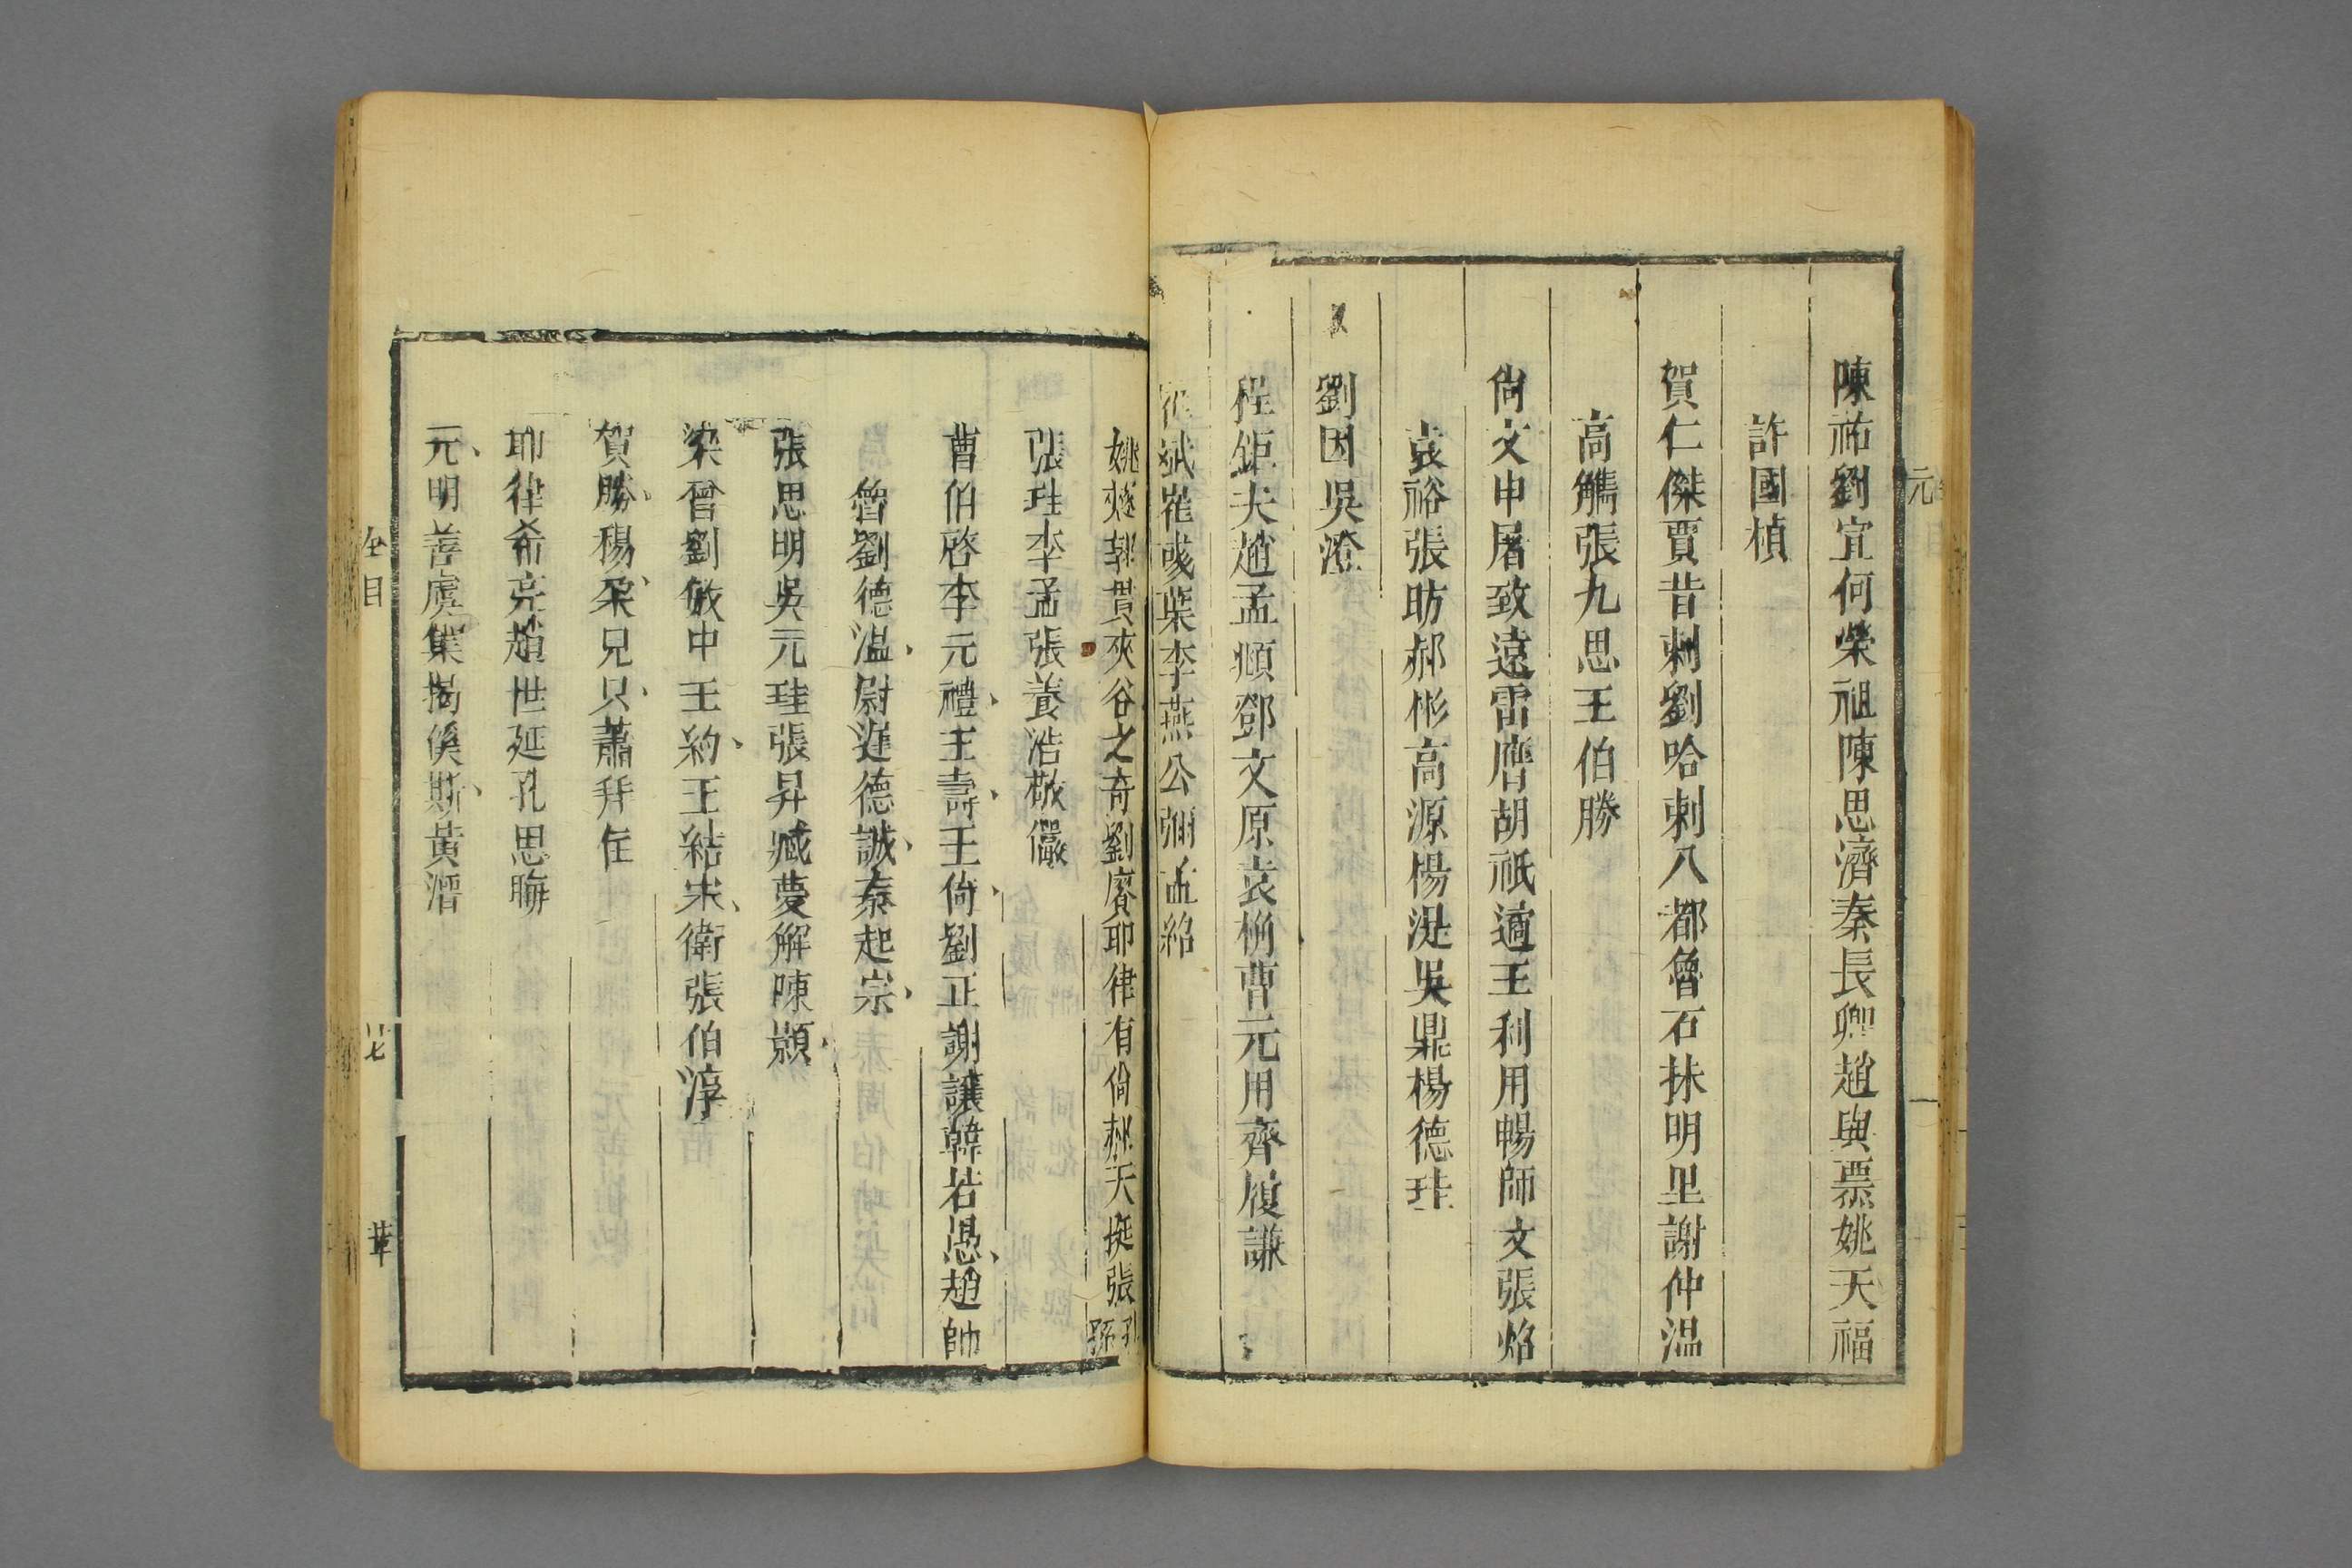 陳祐劉宜何榮祖陳思濟秦長卿趙與票姚天福
許國楨
賀仁傑賈昔剌劉哈剌八都魯石抹明里謝仲温
高觿張九思王伯勝
尙文申屠致遠雷膺胡祗遹王利用暢師文張焰
袁裕張昉郝彬高源楊湜吳鼎楊德珪
劉因吳澄
程鉅夫趙孟頫鄧文原袁桷曹元用齊履謙
崔斌崔彧葉李燕公彌孟紹
元
一
姚燧郭貫夾谷之奇劉賡耶律有尙郝天挺張孔孫
張珪李孟張養浩敬儼
曹伯啓李元禮王壽王倚劉正謝讓韓若愚趙師
魯劉德温尉遲德誠秦起宗
張思明吳元珪張昇臧夢解陳顥
梁曾劉敏中王約王結宋衟張伯淳
賀勝楊朶兒只蕭拜住
耶律希亮趙世延孔思晦
元明善虞集揭傒斯黃溍
全目
廿七